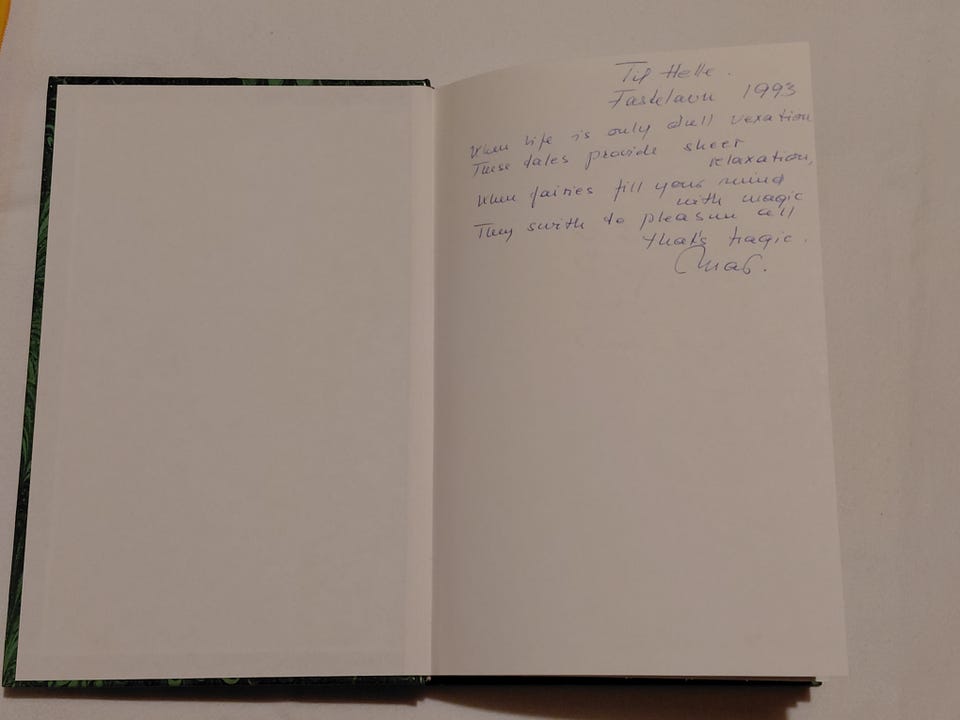 Til Helle.
Fastelavn 1993
When life is only dull vexation
These tales provide sheer
relaxation,
When fairies fill your mind
with magic
They swith to pleasure all
that's tragic.